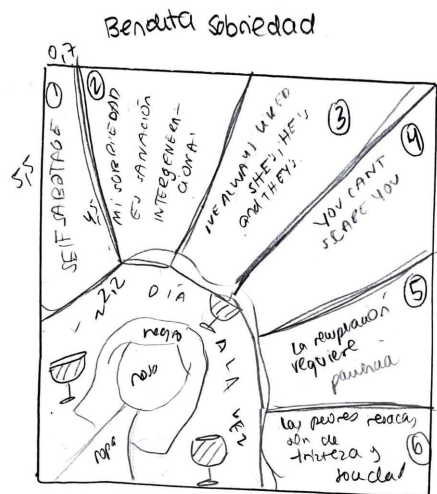 Bendita sobriedad
0,7
5,5
①
SELF SABOTAGE
②
4,5
MI SOBRIEDAD
ES SANACIÓN
INTERGENERA-
CIONAL
③
I'VE ALWAYS LIKED
SHE'S, HE'S
and THEY'S
④
YOU CANT
SCAPE YOU
⑤
La recuperación
requiere
paciencia
⑥
Las peores resacas
son de
tristeza y
soledad
2,2
DÍA
A LA VEZ
negro
ropa